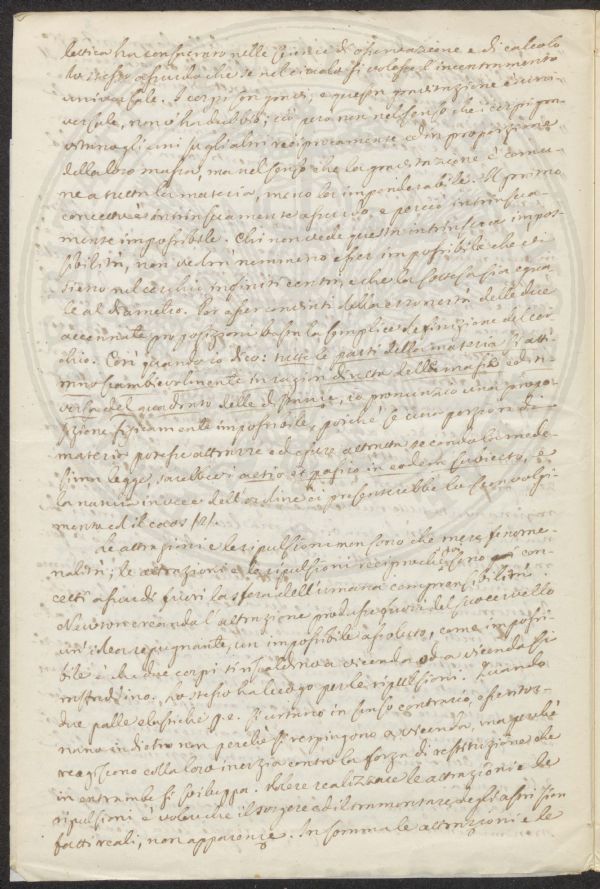 lettica ha consacrato nelle scienze di osservazione e di calcolo
lo stesso assurdo che se nel circolo si volesse l'incentramento
universale. I corpi son gravi, e questa gravitazione è uni-
versale, non v'ha dubbio; ciò però non nel senso che i corpi gra-
vitano gli uni su gli altri reciprocamente ed in proporzione
della loro massa, ma nel senso che la gravitazione è comu-
ne a tutta la materia, meno la imponderabile. Il primo
concetto è intrinsecamente assurdo, e perciò intrinseca-
mente impossibile. Chi non vede questa intrinseca impos-
sibilità, non vedrà nemmeno esser impossibile che vi
sieno nel cerchio infiniti centri, e che la corda sia egua-
le al diametro. Per esser convinti della erroneità delle due
accennate proposizioni basta la semplice definizione del cer-
chio. Così quando io dico: tutte le parti della materia si atti-
rano scambievolmente in ragion diretta delle masse ed in-
versa del quadrato delle distanze, io pronuncio una propo-
sizione fisicamente impossibile, poichè se una porzione di
materia potesse attrarre ed essere attratta secondo la mede-
sima legge, sarebbevi actio et passio in eodem subiecto, e
la natura invece dell'ordine ci presenterebbe lo sconvolgi-
mento ed il caos /2/.
Le attrazioni e le ripulsioni non sono che mere fenome-
nalità; le attrazioni e le ripulsioni reciproche sono con-
cetti assurdi fuori la sfera dell'umana comprensibilità.
Newton creando l'attrazione produsse fuori del suo cervello
un'idea repugnante, un impossibile assoluto, come impossi-
bile è che due corpi si a vicenda ed a vicenda si
. Lo stesso ha luogo per le ripulsioni. Quando
due palle elastiche p.e. si urtano in senso contrario, esse ritor-
nano indietro non perchè si respingono a vicenda, ma perchè
reagiscono colla loro inerzia contro la forza di restituzione che
in entrambe si sviluppa. Volere realizzare le attrazioni e le
ripulsioni è volere che il sorgere ed il tramontare degli astri sien
fatti reali, non apparenze. Insomma le attrazioni e le